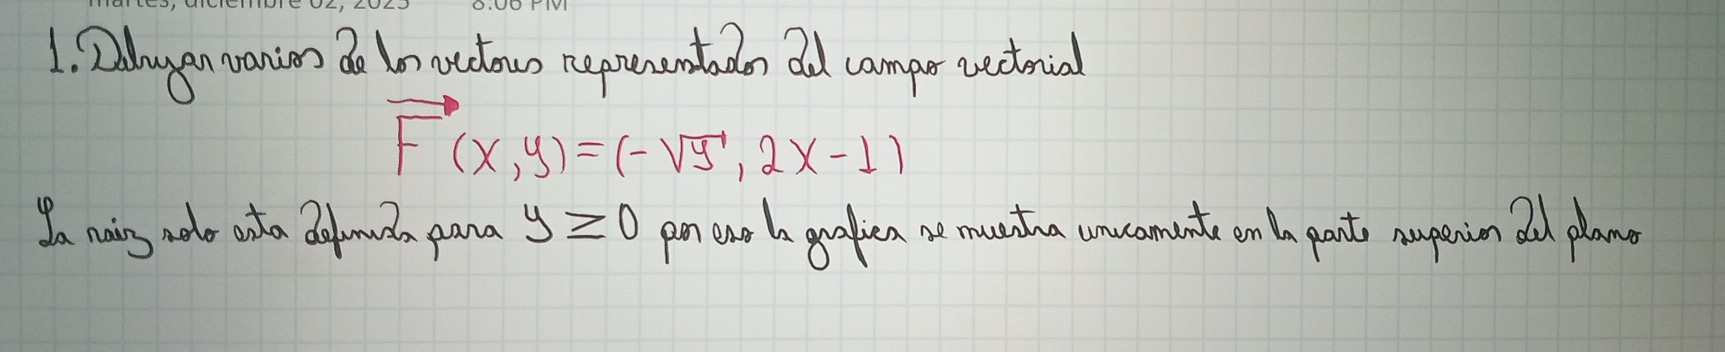 martes, diciembre 02, 2025 8:06 PM
1. Dibujar varios de los vectores representados del campo vectorial
F (x,y)=(-√y, 2x-1)
La raiz solo esta definida para y≥0 por eso la grafica se muestra unicamente en la parte superior del plano